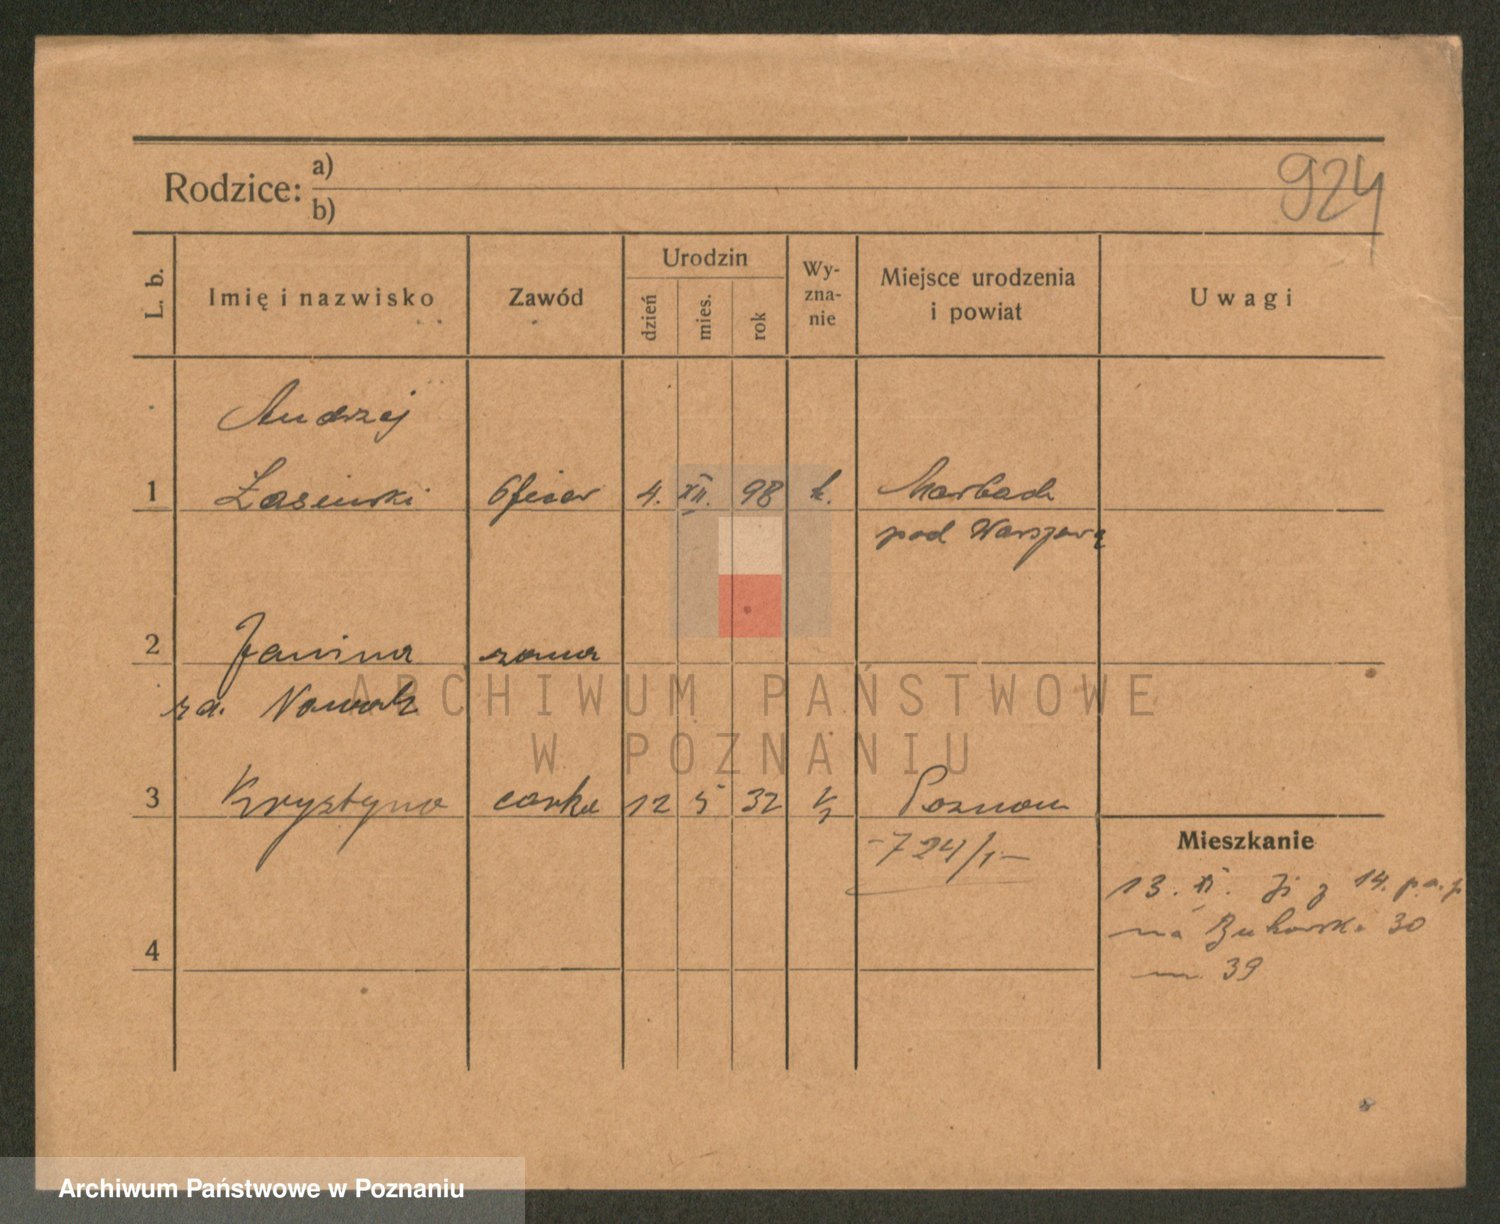 924
Rodzice: a)
b)
L. b.
Imię i nazwisko
Zawód
Urodzin
dzień
mies.
rok
Wy-
zna-
nie
Miejsce urodzenia
i powiat
Uwagi
Andrzej
1 Łasiński Oficer 4. XII. 98 k. Marbach
pod Warszawą
2 Janina żona
za. Nowak
3 Krystyna córka 12 5 32 k Poznań
-724/1-
Mieszkanie
13. XI. z 14. p.a.p
na Bukowska 30
m. 39
4
ARCHIWUM PAŃSTWOWE
W POZNANIU
Archiwum Państwowe w Poznaniu